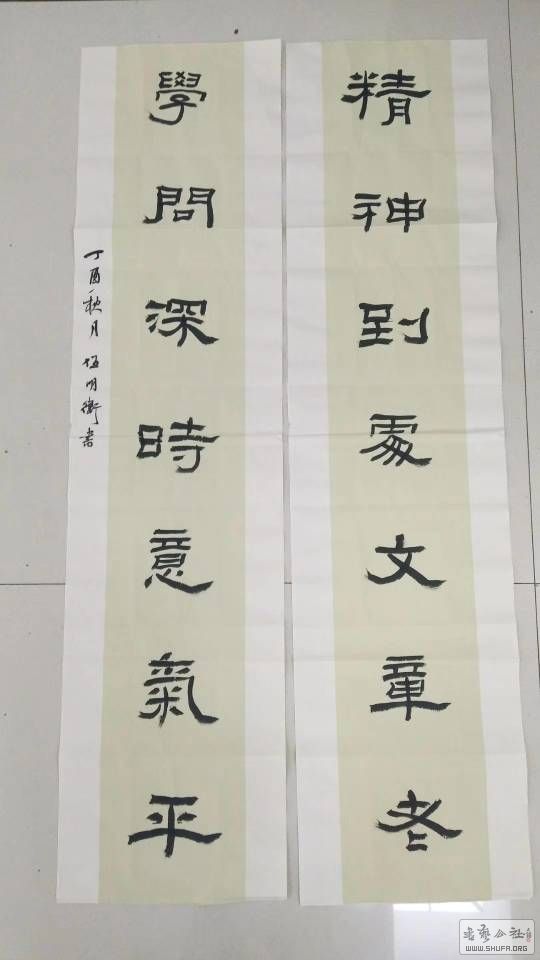 精神到處文章老
學問深時意氣平
丁酉秋月伍明衡書
書藝公社
WWW.SHUFA.ORG